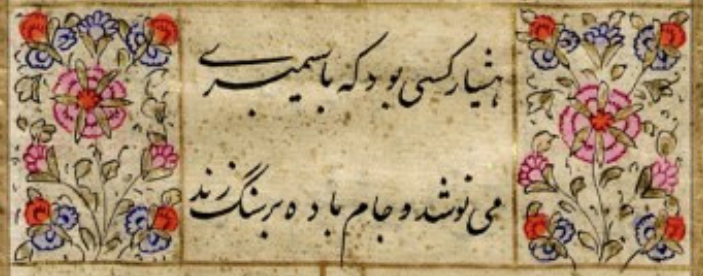 هشیار کسی بود که با سیمبری
می نوشد و جام باده بر سنگ زند